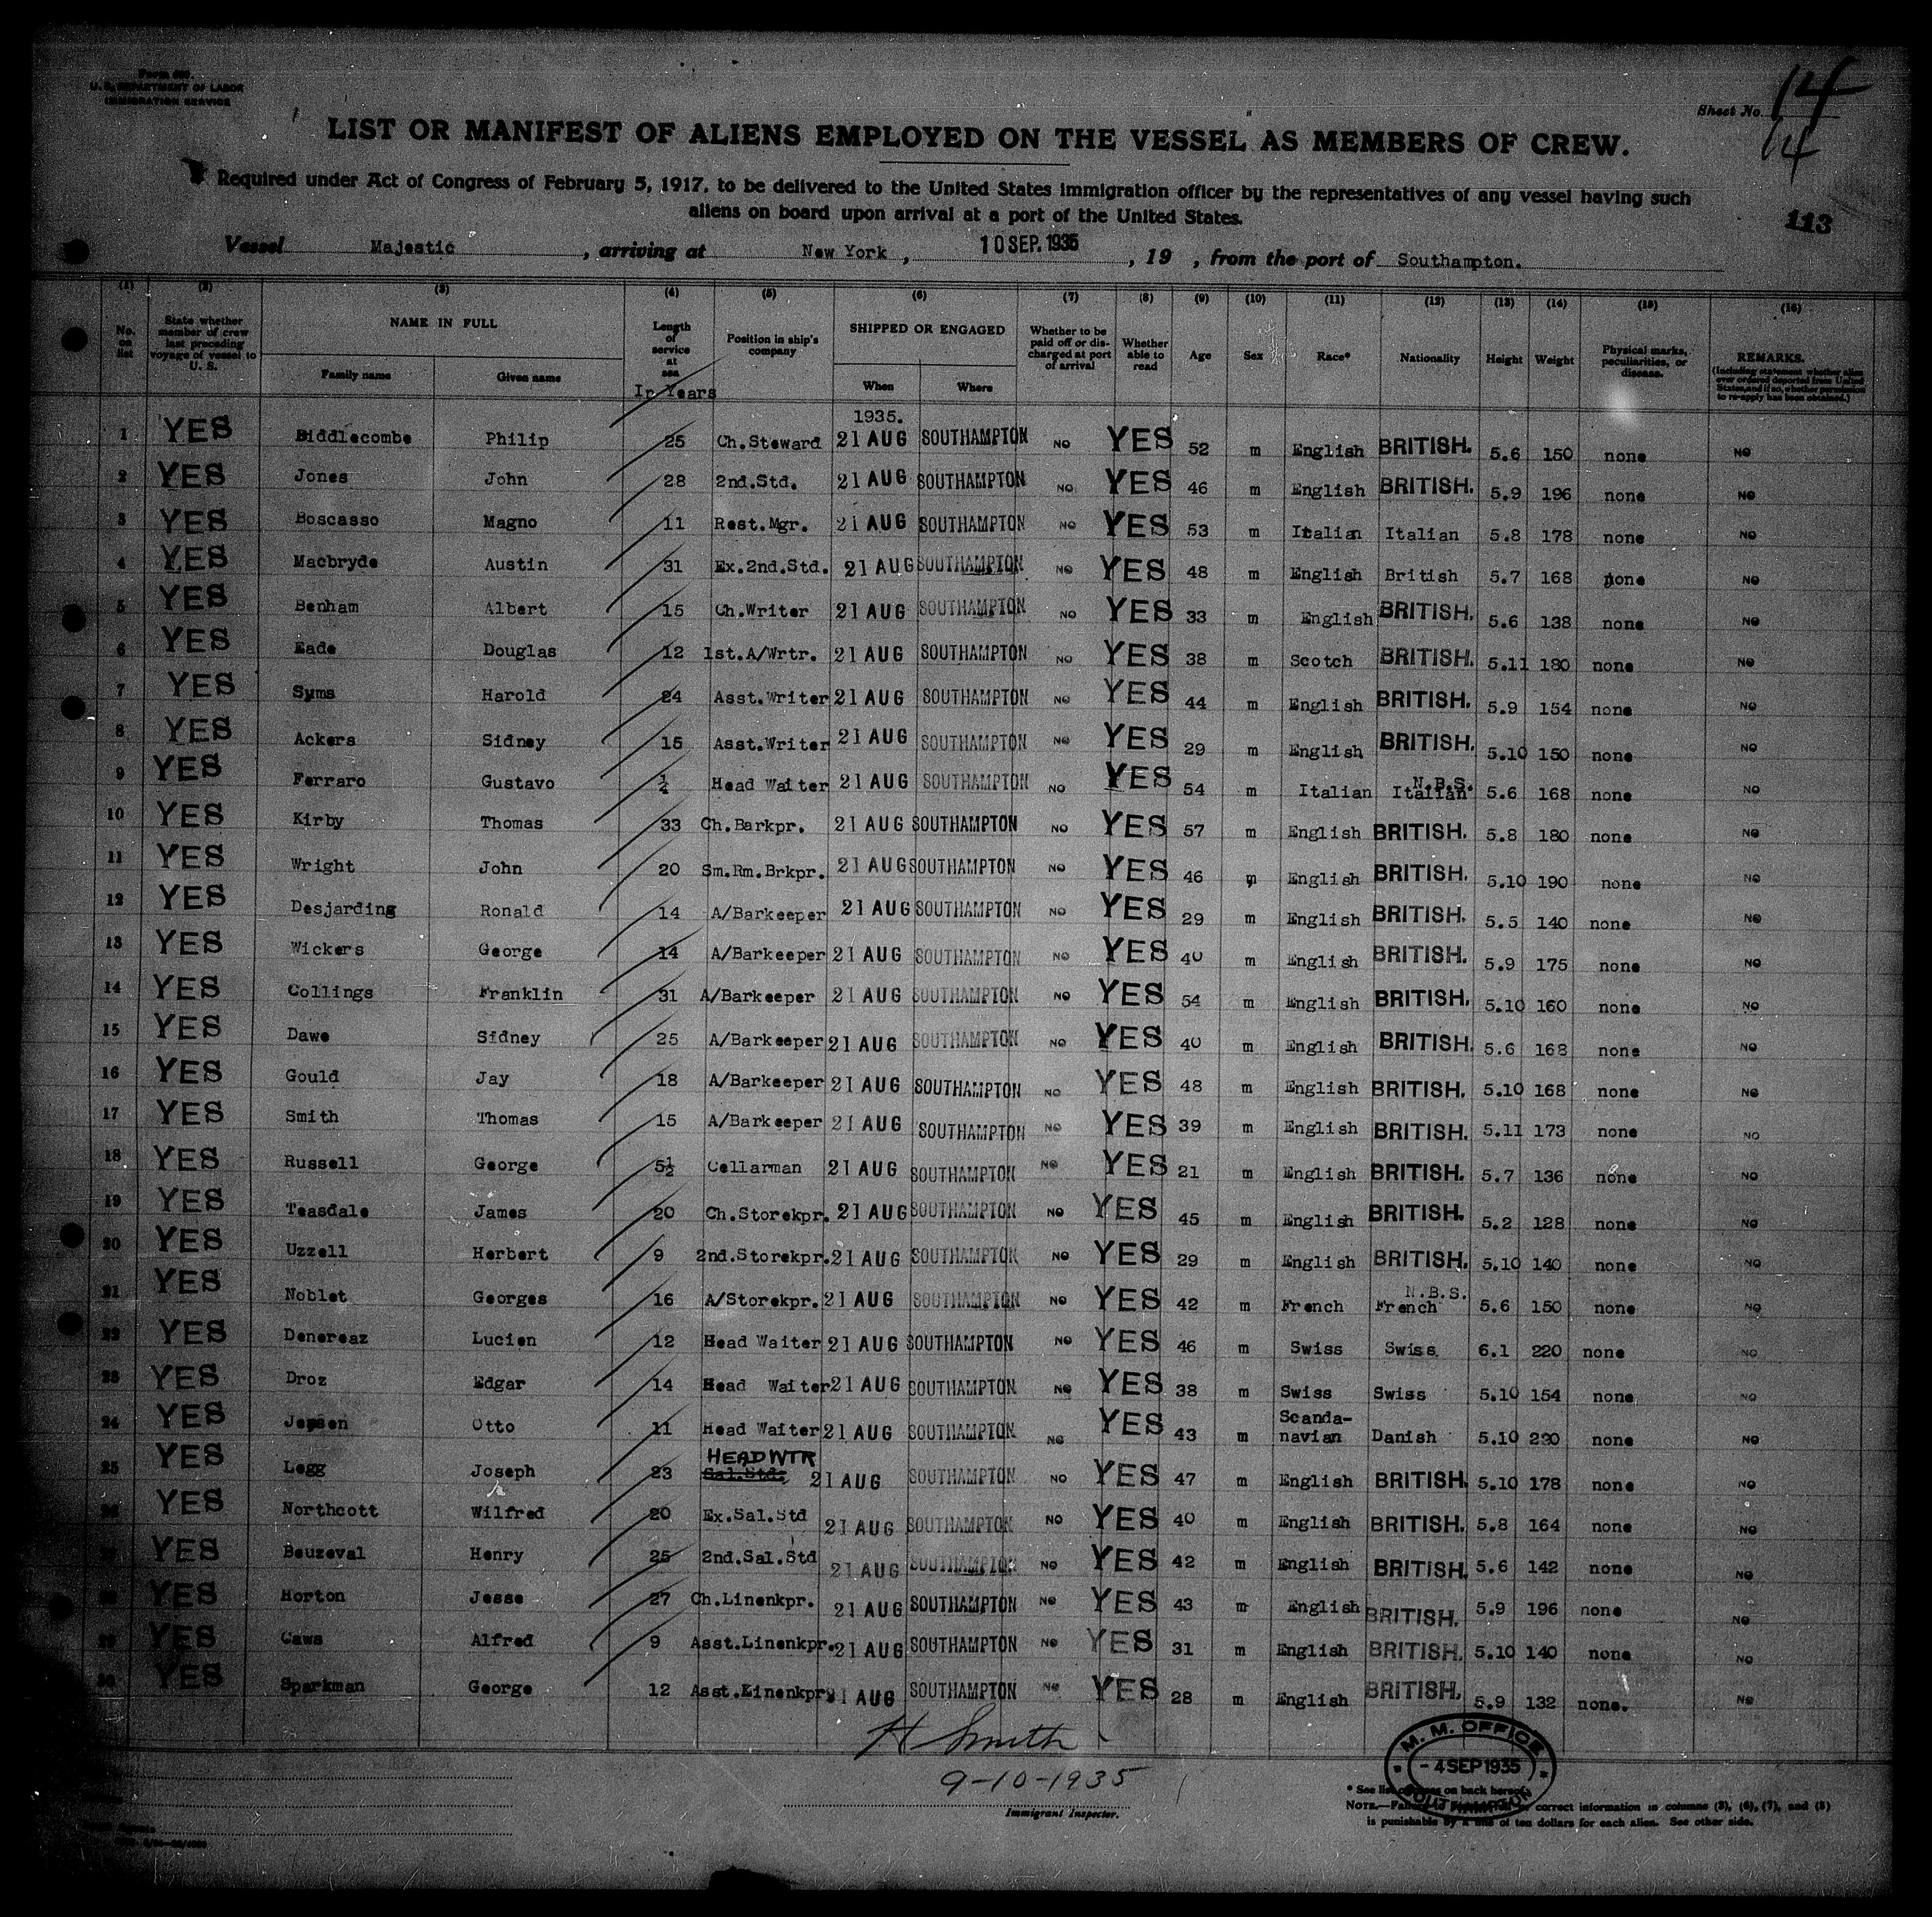 Form 689
U. S. DEPARTMENT OF LABOR
IMMIGRATION SERVICE
Sheet No. 14
14
LIST OR MANIFEST OF ALIENS EMPLOYED ON THE VESSEL AS MEMBERS OF CREW.
Required under Act of Congress of February 5, 1917, to be delivered to the United States immigration officer by the representatives of any vessel having such
aliens on board upon arrival at a port of the United States.
113
Vessel Majestic, arriving at New York, 10 SEP. 1935, 19 , from the port of Southampton.
(1) (2) (3) (4) (5) (6) (7) (8) (9) (10) (11) (12) (13) (14) (15) (16)
No. on list
State whether member of crew last preceding voyage of vessel to U. S.
NAME IN FULL
Family name
Given name
Length of service at sea
In Years
Position in ship's company
SHIPPED OR ENGAGED
When
Where
Whether to be paid off or discharged at port of arrival
Whether able to read
Age
Sex
Race*
Nationality
Height
Weight
Physical marks, peculiarities, or disease.
REMARKS.
(Including statement whether alien ever ordered deported from United States, and if so, whether permission to re-apply has been obtained.)
1935.
1 YES Biddlecombe Philip 25 Ch.Steward 21 AUG SOUTHAMPTON NO YES 52 m English BRITISH. 5.6 150 none NO
2 YES Jones John 28 2nd.Std. 21 AUG SOUTHAMPTON NO YES 46 m English BRITISH. 5.9 196 none NO
3 YES Boscasso Magno 11 Rest.Mgr. 21 AUG SOUTHAMPTON NO YES 53 m Italian Italian 5.8 178 none NO
4 YES Macbryde Austin 31 Ex.2nd.Std. 21 AUG SOUTHAMPTON NO YES 48 m English British 5.7 168 none NO
5 YES Benham Albert 15 Ch.Writer 21 AUG SOUTHAMPTON NO YES 33 m English BRITISH. 5.6 138 none NO
6 YES Eade Douglas 12 1st.A/Wrtr. 21 AUG SOUTHAMPTON NO YES 38 m Scotch BRITISH. 5.11 180 none NO
7 YES Syms Harold 24 Asst.Writer 21 AUG SOUTHAMPTON NO YES 44 m English BRITISH. 5.9 154 none NO
8 YES Ackers Sidney 15 Asst.Writer 21 AUG SOUTHAMPTON NO YES 29 m English BRITISH. 5.10 150 none NO
9 YES Ferraro Gustavo Head Waiter 21 AUG SOUTHAMPTON NO YES 54 m Italian Italian N.B.S. 5.6 168 none NO
10 YES Kirby Thomas 33 Ch.Barkpr. 21 AUG SOUTHAMPTON NO YES 57 m English BRITISH. 5.8 180 none NO
11 YES Wright John 20 Sm.Rm.Brkpr. 21 AUG SOUTHAMPTON NO YES 46 m English BRITISH. 5.10 190 none NO
12 YES Desjarding Ronald 14 A/Barkeeper 21 AUG SOUTHAMPTON NO YES 29 m English BRITISH. 5.5 140 none NO
13 YES Wickers George 14 A/Barkeeper 21 AUG SOUTHAMPTON NO YES 40 m English BRITISH. 5.9 175 none NO
14 YES Collings Franklin 31 A/Barkeeper 21 AUG SOUTHAMPTON NO YES 54 m English BRITISH. 5.10 160 none NO
15 YES Dawe Sidney 25 A/Barkeeper 21 AUG SOUTHAMPTON NO YES 40 m English BRITISH. 5.6 168 none NO
16 YES Gould Jay 18 A/Barkeeper 21 AUG SOUTHAMPTON NO YES 48 m English BRITISH. 5.10 168 none NO
17 YES Smith Thomas 15 A/Barkeeper 21 AUG SOUTHAMPTON NO YES 39 m English BRITISH. 5.11 173 none NO
18 YES Russell George 5½ Cellarman 21 AUG SOUTHAMPTON NO YES 21 m English BRITISH. 5.7 136 none NO
19 YES Teasdale James 20 Ch.Storekpr. 21 AUG SOUTHAMPTON NO YES 45 m English BRITISH. 5.2 128 none NO
20 YES Uzzell Herbert 9 2nd.Storekpr. 21 AUG SOUTHAMPTON NO YES 29 m English BRITISH. 5.10 140 none NO
21 YES Noblet Georges 16 A/Storekpr. 21 AUG SOUTHAMPTON NO YES 42 m French French N.B.S. 5.6 150 none NO
22 YES Denereaz Lucien 12 Head Waiter 21 AUG SOUTHAMPTON NO YES 46 m Swiss Swiss 6.1 220 none NO
23 YES Droz Edgar 14 Head Waiter 21 AUG SOUTHAMPTON NO YES 38 m Swiss Swiss 5.10 154 none NO
24 YES Jepsen Otto 11 Head Waiter 21 AUG SOUTHAMPTON NO YES 43 m Scandanavian Danish 5.10 none NO
25 YES Legg Joseph 23 HEAD WTR Sal.Std. 21 AUG SOUTHAMPTON NO YES 47 m English BRITISH. 5.10 178 none NO
26 YES Northcott Wilfred 20 Ex.Sal.Std 21 AUG SOUTHAMPTON NO YES 40 m English BRITISH. 5.8 164 none NO
27 YES Beuzeval Henry 25 2nd.Sal.Std 21 AUG SOUTHAMPTON NO YES 42 m English BRITISH. 5.6 142 none NO
28 YES Horton Jesse 27 Ch.Linenkpr. 21 AUG SOUTHAMPTON NO YES 43 m English BRITISH. 5.9 196 none NO
29 YES Caws Alfred 9 Asst.Linenkpr. 21 AUG SOUTHAMPTON NO YES 31 m English BRITISH. 5.10 140 none NO
30 YES Sparkman George 12 Asst.Linenkpr. 21 AUG SOUTHAMPTON NO YES 28 m English BRITISH. 5.9 132 none. NO
H Smith
9-10-1935
Immigrant Inspector.
M. M. OFFICE
- 4 SEP 1935
SOUTHAMPTON
* See list of races on back hereof.
NOTE.—Failure to correct information in columns (3), (6), (7), and (8)
is punishable by a fine of ten dollars for each alien. See other side.